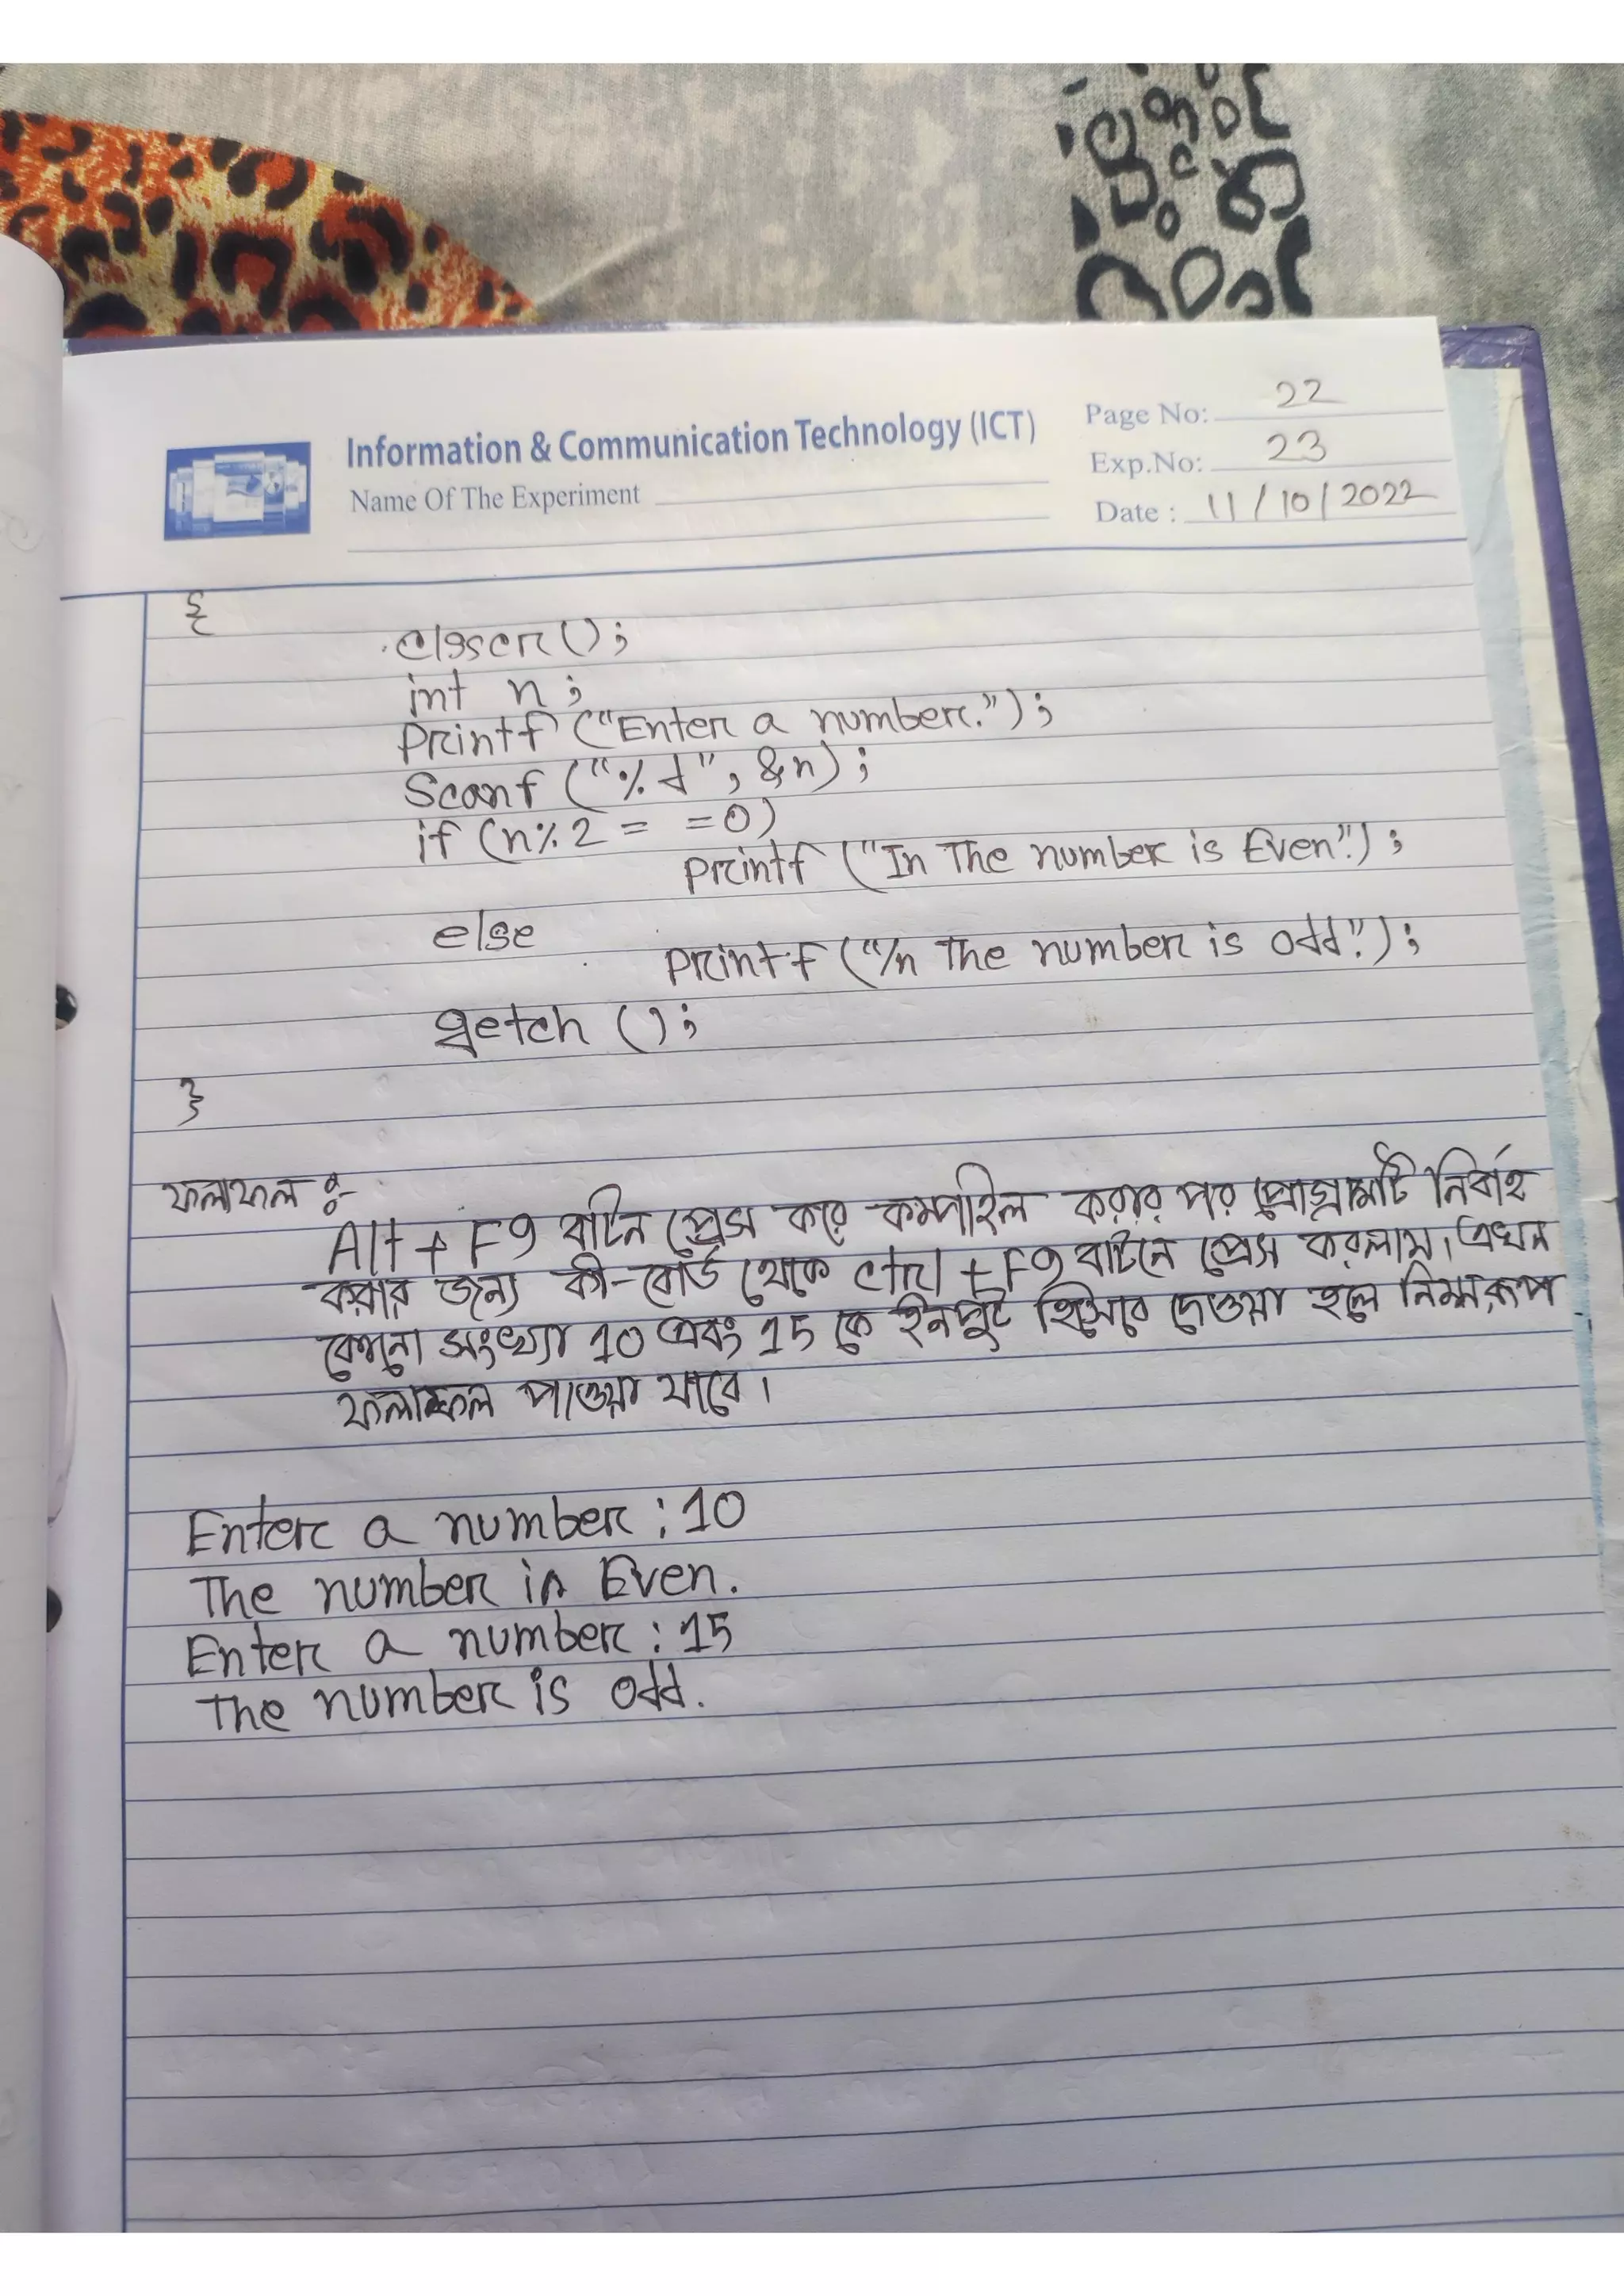 Information & Communication Technology (ICT)
Name Of The Experiment
Page No: 22
Exp.No: 23
Date : 11/10/2022
{
clsscr();
int n;
Printf ("Enter a number.");
Scanf ("%d", &n);
if (n%2 = =0)
Printf ("In The number is Even".);
else
Printf ("/n The number is odd".);
getch ();
}
ফলাফল ঃ-
Alt + F9 বাটন প্রেস করে কম্পাইল করার পর প্রোগ্রামটি নির্বাহ
করার জন্য কী-বোর্ড থেকে ctrl + F9 বাটনে প্রেস করলাম। এখন
কোনো সংখ্যা 10 এবং 15 কে ইনপুট হিসেবে দেওয়া হলে নিম্নরূপ
ফলাফল পাওয়া যাবে।
Enter a number : 10
The number is Even.
Enter a number : 15
The number is odd.